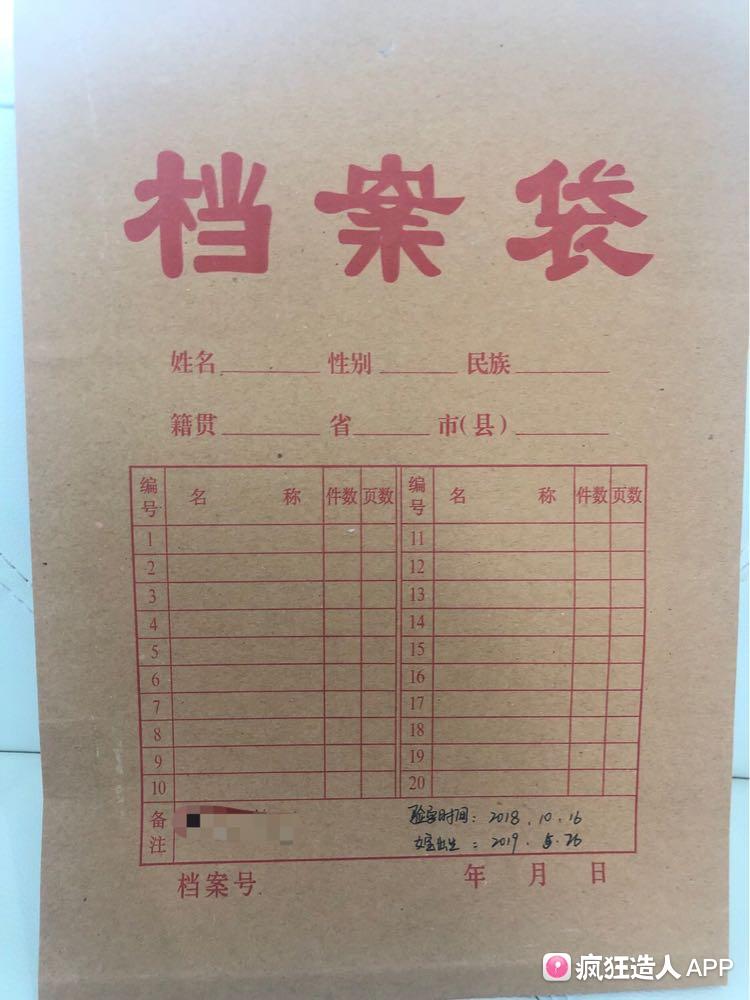 档案袋
姓名 性别 民族
籍贯 省 市(县)
编号 名称 件数 页数 编号 名称 件数 页数
1 11
2 12
3 13
4 14
5 15
6 16
7 17
8 18
9 19
10 20
备注 验孕时间：2018.10.16
女宝出生：2019.5.26
档案号 年 月 日
疯狂造人 APP